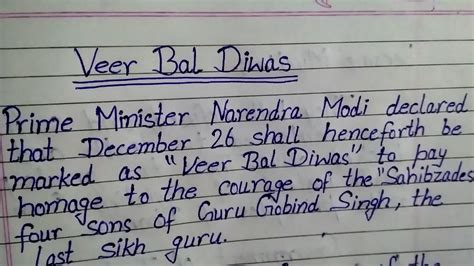 Veer Bal Diwas
Prime Minister Narendra Modi declared
that December 26 shall henceforth be
marked as "Veer Bal Diwas" to pay
homage to the courage of the "Sahibzades
four sons of Guru Gobind Singh, the
last sikh guru.
of the